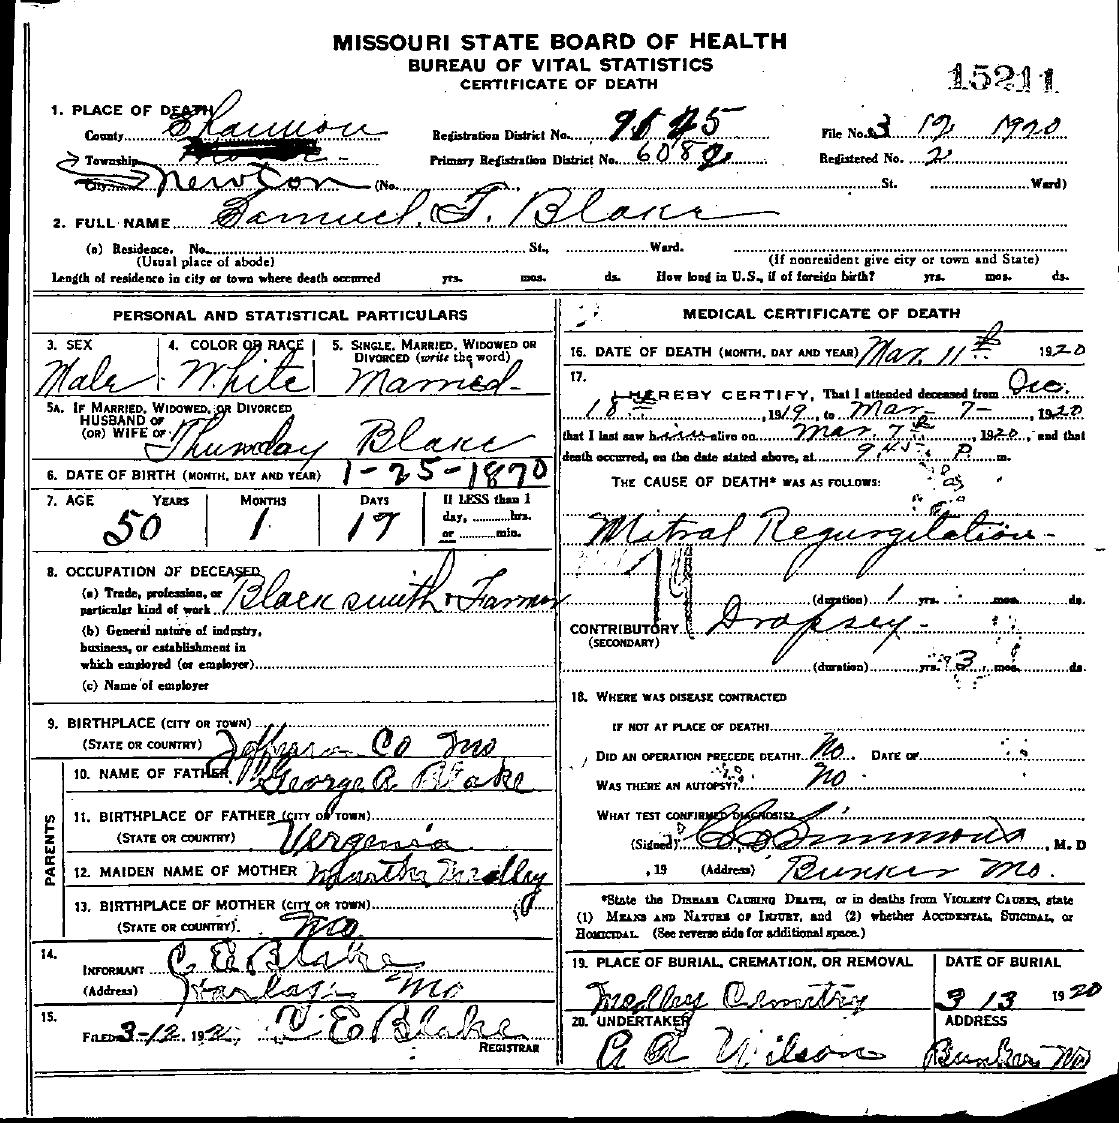 MISSOURI STATE BOARD OF HEALTH
BUREAU OF VITAL STATISTICS
CERTIFICATE OF DEATH
15211
1. PLACE OF DEATH
County Shannon Registration District No. File No. 3 12 1920
Township Primary Registration District No. 6082 Registered No. 2
City Newton (No. St. Ward)
2. FULL NAME Samuel. T. Blake
(a) Residence. No. St., Ward.
(Usual place of abode) (If nonresident give city or town and State)
Length of residence in city or town where death occurred yrs. mos. ds. How long in U.S., if of foreign birth? yrs. mos. ds.
PERSONAL AND STATISTICAL PARTICULARS
3. SEX 4. COLOR OR RACE 5. SINGLE, MARRIED, WIDOWED OR
DIVORCED (write the word)
Male White Married
5A. IF MARRIED, WIDOWED, OR DIVORCED
HUSBAND OF
(OR) WIFE OF Thursday Blake
6. DATE OF BIRTH (MONTH, DAY AND YEAR) 1-25-1870
7. AGE YEARS MONTHS DAYS If LESS than 1
day, hrs.
or min.
50 1 17
8. OCCUPATION OF DECEASED
(a) Trade, profession, or
particular kind of work Blacksmith & Farmer
(b) General nature of industry,
business, or establishment in
which employed (or employer)
(c) Name of employer
9. BIRTHPLACE (CITY OR TOWN)
(STATE OR COUNTRY) Jefferson Co Mo
PARENTS
10. NAME OF FATHER George A Blake
11. BIRTHPLACE OF FATHER (CITY OR TOWN)
(STATE OR COUNTRY) Vergenia
12. MAIDEN NAME OF MOTHER Martha Medley
13. BIRTHPLACE OF MOTHER (CITY OR TOWN)
(STATE OR COUNTRY). Mo.
14.
INFORMANT C E Blake
(Address) Mo
15.
FILED 3-12, 192 C E Blake
REGISTRAR
MEDICAL CERTIFICATE OF DEATH
16. DATE OF DEATH (MONTH, DAY AND YEAR) Mar. 11th 1920
17.
I HEREBY CERTIFY, That I attended deceased from Dec.
18 1919, to Mar- 7-, 1920
that I last saw him alive on Mar. 7th, 1920, and that
death occurred, on the date stated above, at 9.45 P. m.
THE CAUSE OF DEATH* WAS AS FOLLOWS:
Mitral Regurgitation-
79
(duration) 1 yrs. mos. ds.
CONTRIBUTORY Dropsey-
(SECONDARY)
(duration) yrs. 3 mos. ds.
18. WHERE WAS DISEASE CONTRACTED
IF NOT AT PLACE OF DEATH?
DID AN OPERATION PRECEDE DEATH? No DATE OF
WAS THERE AN AUTOPSY? No
WHAT TEST CONFIRMED DIAGNOSIS?
(Signed) Simmons, M. D
, 19 (Address) Bunker Mo.
*State the DISEASE CAUSING DEATH, or in deaths from VIOLENT CAUSES, state
(1) MEANS AND NATURE OF INJURY, and (2) whether ACCIDENTAL, SUICIDAL, or
HOMICIDAL. (See reverse side for additional space.)
19. PLACE OF BURIAL, CREMATION, OR REMOVAL DATE OF BURIAL
Medley Cemetry 3 13 1920
20. UNDERTAKER ADDRESS
A A Wilson Bunker Mo